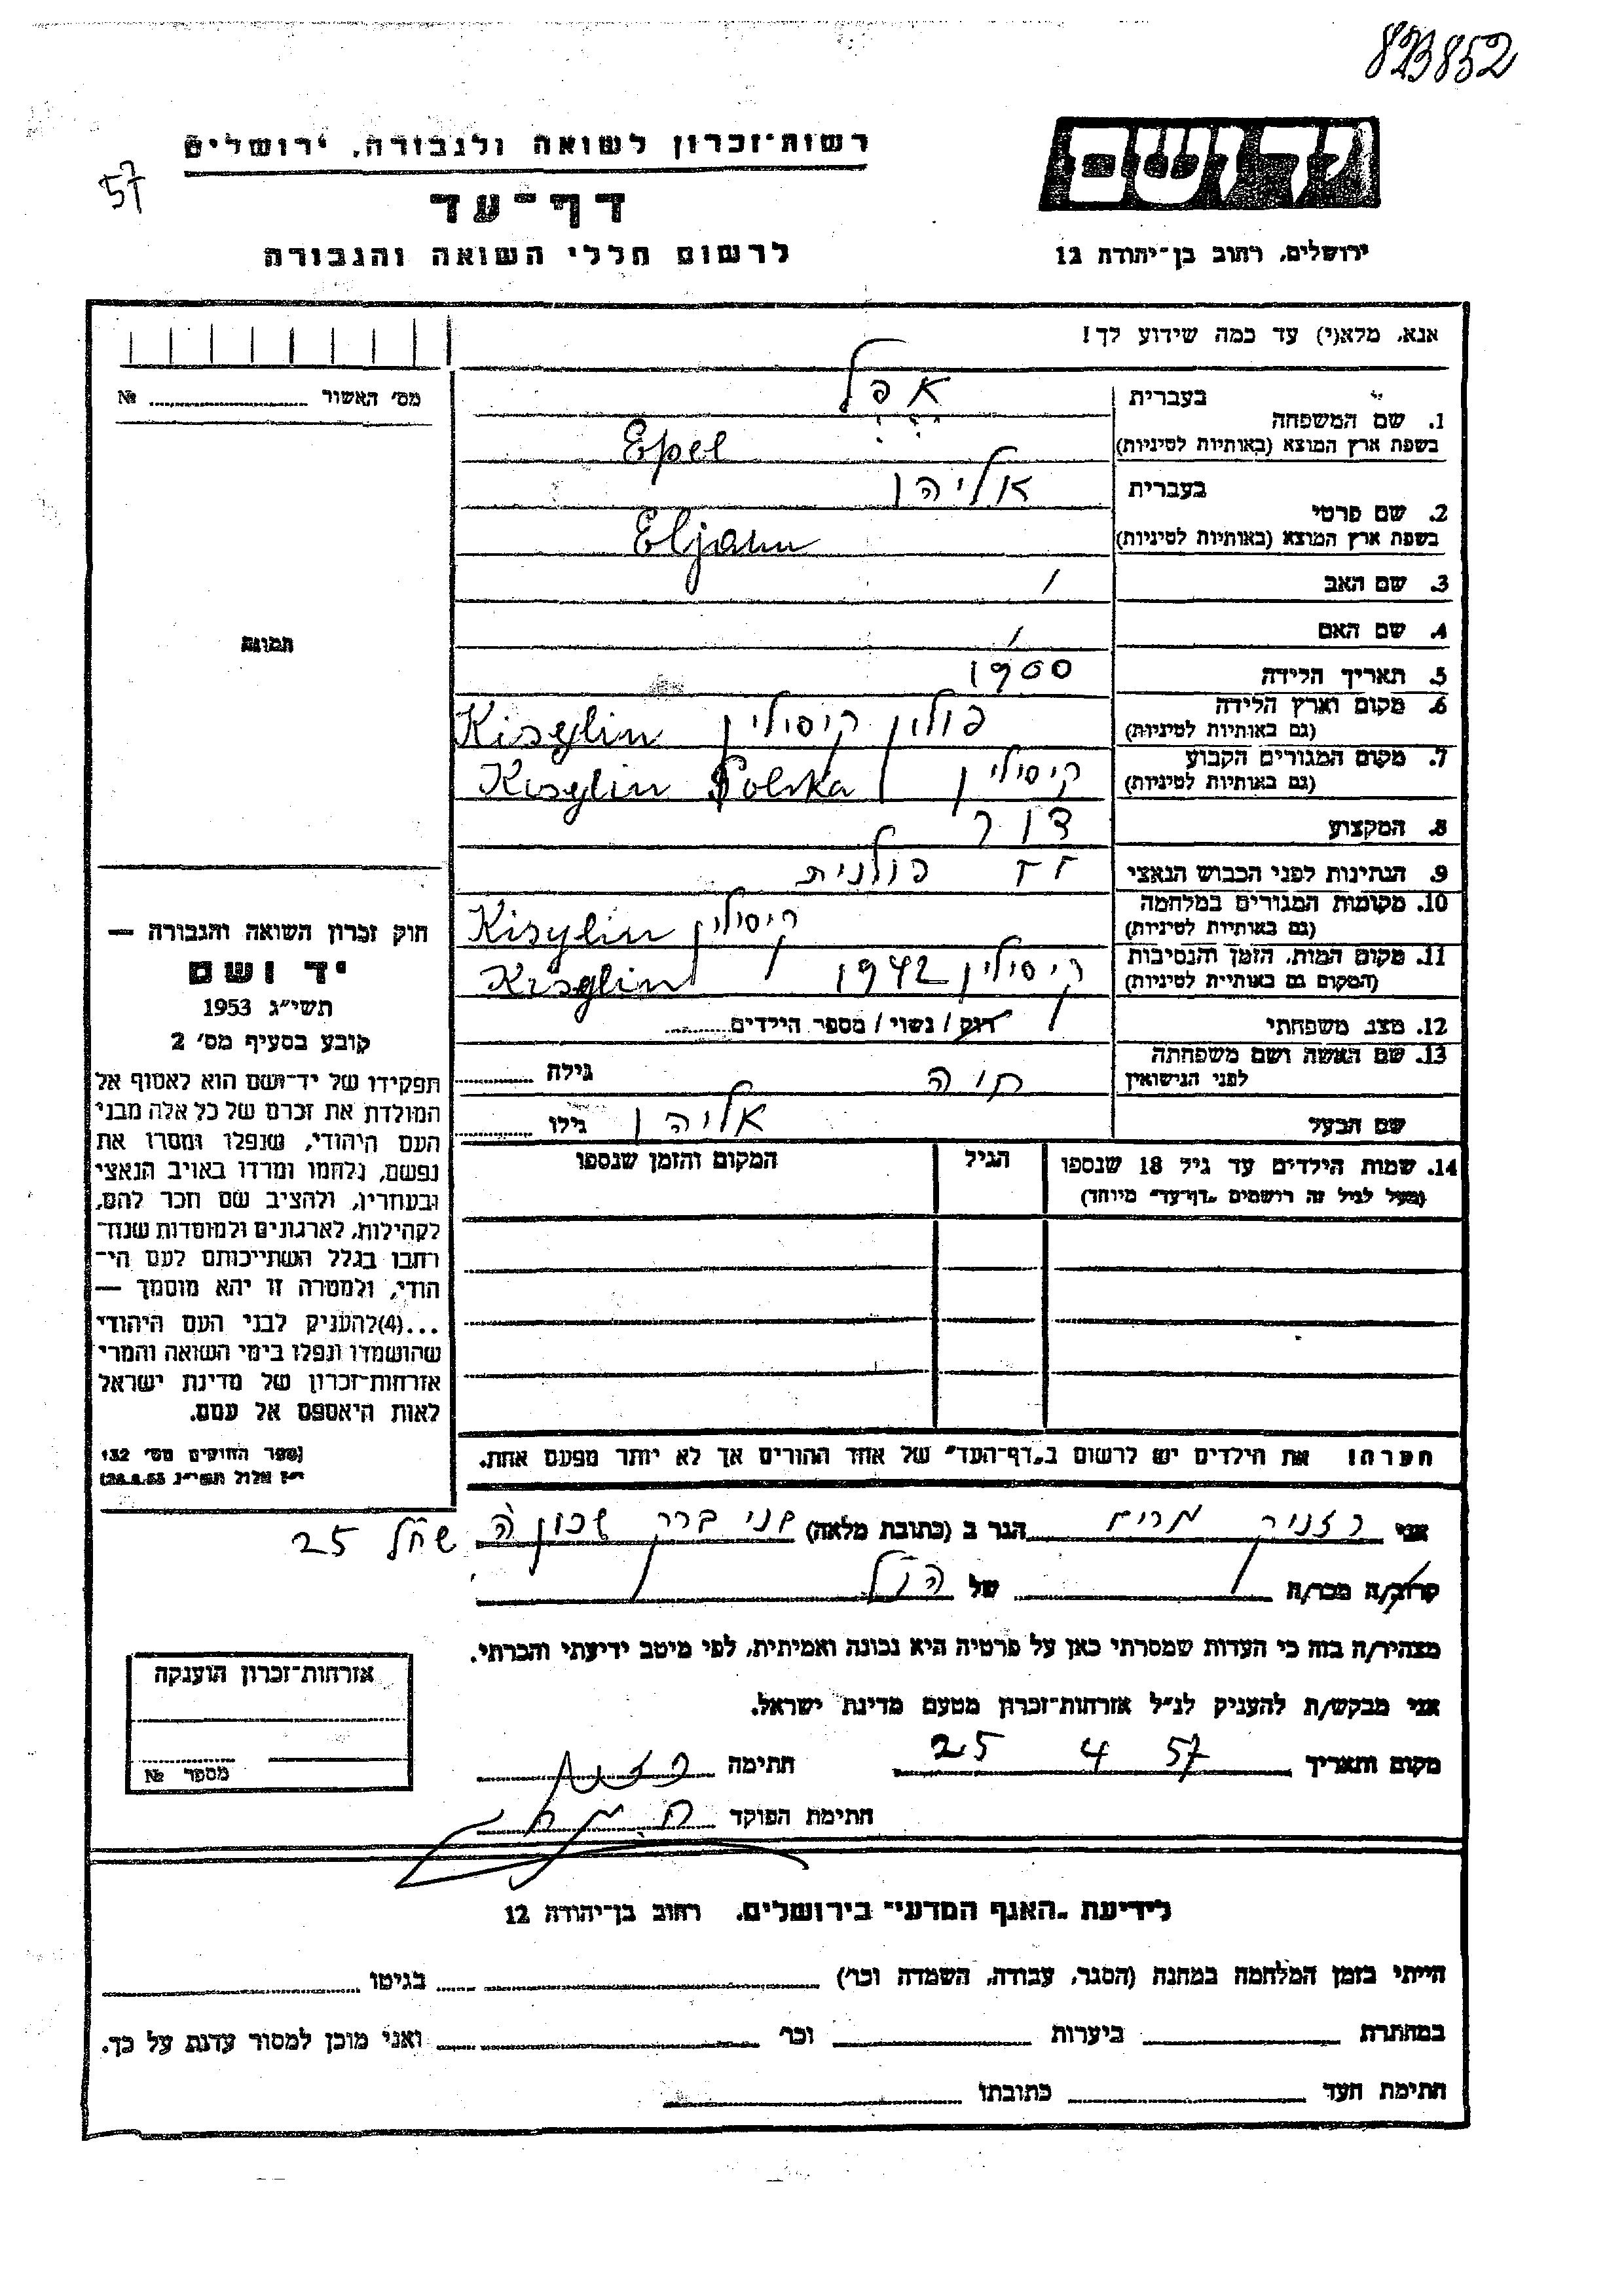 823852
רשות־זכרון לשואה ולגבורה, ירושלים
57
דף־עד
לרשום חללי השואה והגבורה
יד ושם
ירושלים, רחוב בן־יהודה 12
אנא, מלא(י) עד כמה שידוע לך!
מס' האשור № 
1. שם המשפחה
בעברית אפל
בשפת ארץ המוצא (באותיות לטיניות) Epel
2. שם פרטי
בעברית אליהו
בשפת ארץ המוצא (באותיות לטיניות) Eljahu
3. שם האב /
4. שם האם /
תמונה
5. תאריך הלידה 1900
6. מקום וארץ הלידה פולין קיסילין Kisylin
(גם באותיות לטיניות)
7. מקום המגורים הקבוע קיסילין Kisylin Polska
(גם באותיות לטיניות)
8. המקצוע
9. הנתינות לפני הכבוש הנאצי פולנית
10. מקומות המגורים במלחמה קיסילין Kisylin
(גם באותיות לטיניות)
11. מקום המות, הזמן והנסיבות קיסילין 1942 Kisylin
(המקום גם באותיות לטיניות)
12. מצב משפחתי רווק / נשוי / מספר הילדים
13. שם האשה ושם משפחתה חיה גילה
לפני הנישואין
שם הבעל אליהו גילו
14. שמות הילדים עד גיל 18 שנספו הגיל המקום והזמן שנספו
(מעל לגיל זה רושמים „דף־עד" מיוחד)
חוק זכרון השואה והגבורה —
יד ושם
תשי"ג 1953
קובע בסעיף מס' 2
תפקידו של יד־ושם הוא לאסוף אל
המולדת את זכרם של כל אלה מבני
העם היהודי, שנפלו ומסרו את
נפשם, נלחמו ומרדו באויב הנאצי
ובעוזריו, ולהציב שם וזכר להם,
לקהילות, לארגונים ולמוסדות שנח־
רבו בגלל השתייכותם לעם הי־
הודי, ולמטרה זו יהא מוסמך —
...(4)להעניק לבני העם היהודי
שהושמדו ונפלו בימי השואה והמרי
אזרחות־זכרון של מדינת ישראל
לאות היאספם אל עמם.
(ספר החוקים מס' 132
י"ז אלול תשי"ג 28.8.53)
הערה! את הילדים יש לרשום ב„דף־העד" של אחד ההורים אך לא יותר מפעם אחת.
אני רזניק מרים הגר ב (כתובת מלאה) בני ברק שכון ה 25
קרוב/ה מכר/ה של הנ"ל
מצהיר/ה בזה כי העדות שמסרתי כאן על פרטיה היא נכונה ואמיתית, לפי מיטב ידיעתי והכרתי.
אני מבקש/ת להעניק לנ"ל אזרחות־זכרון מטעם מדינת ישראל.
מקום ותאריך 25 4 57 חתימה
חתימת הפוקד
אזרחות־זכרון הוענקה
מספר №
לידיעת „האגף המדעי" בירושלים, רחוב בן־יהודה 12
הייתי בזמן המלחמה במחנה (הסגר, עבודה, השמדה וכו') בגיטו
במחתרת ביערות וכו' ואני מוכן למסור עדות על כך.
חתימת העד כתובתו